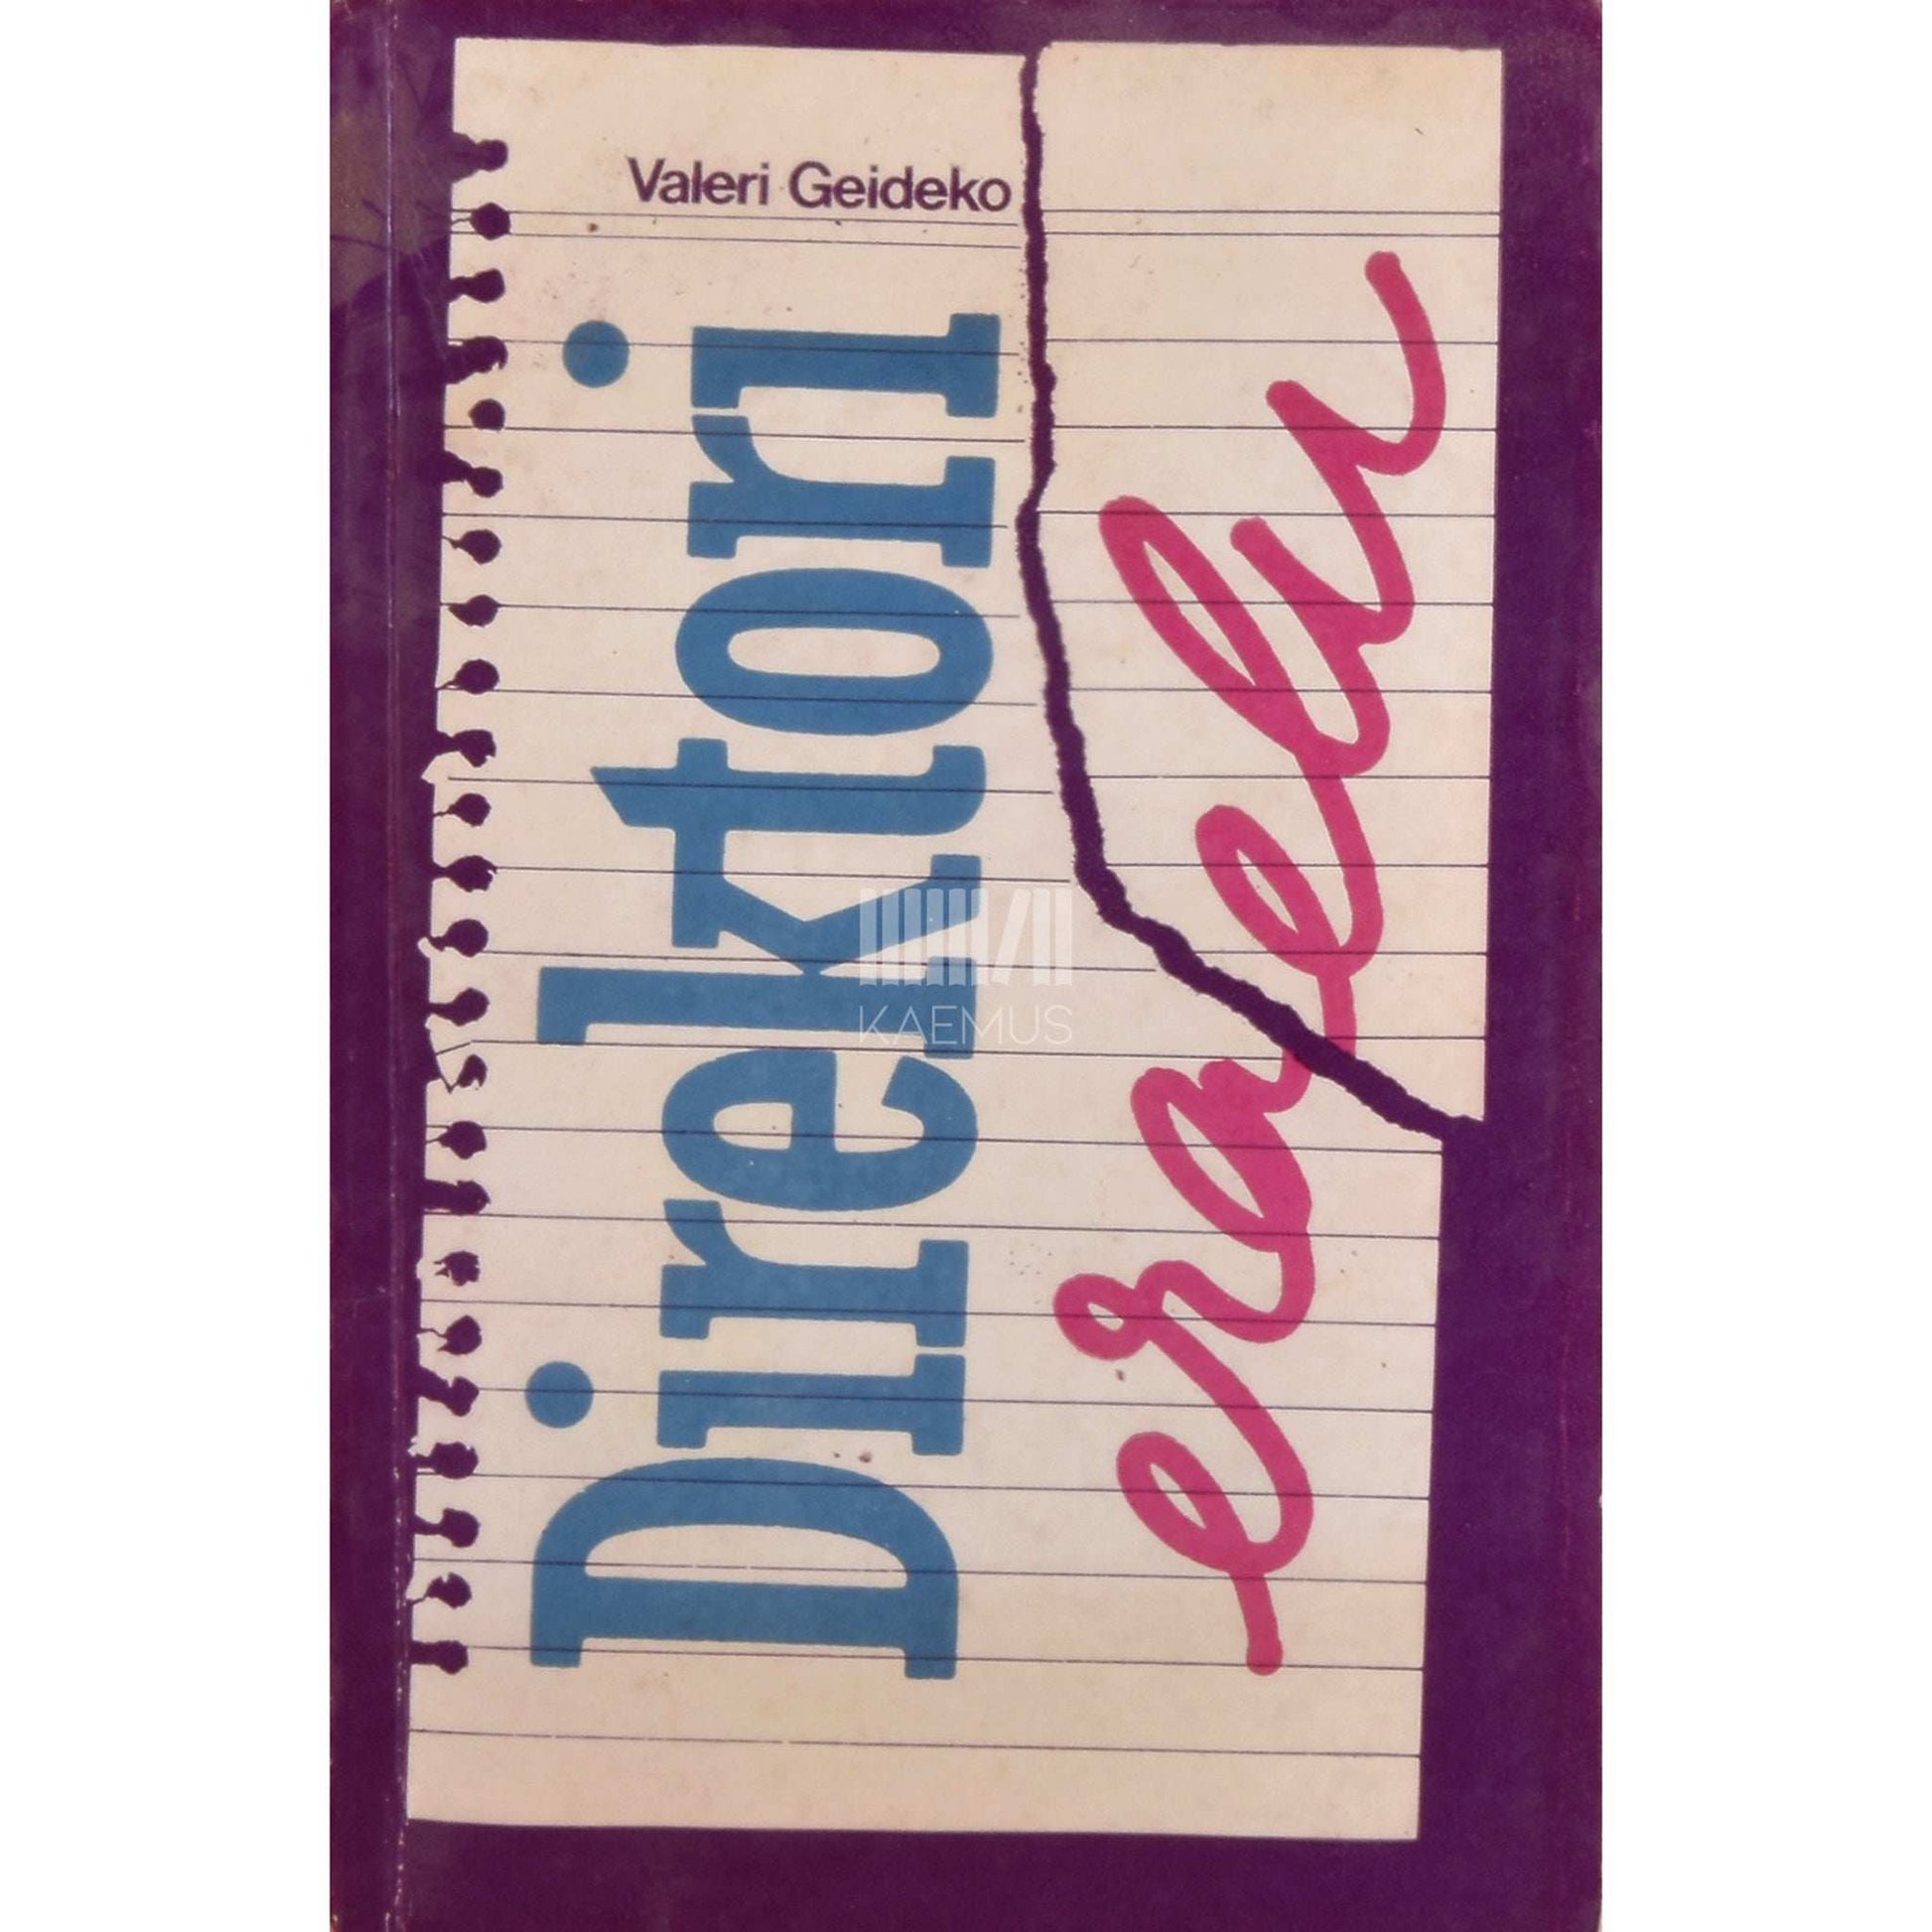 Valeri Geideko
Direktori
eraelu
KAEMUS